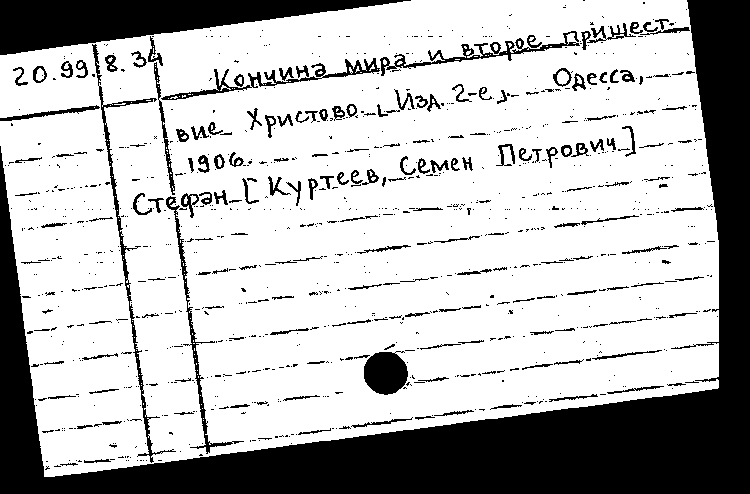 20.99.8.34
Кончина мира и второе пришест-
вие Христово. [Изд. 2-е]. Одесса,
1906.
Стефан [Куртеев, Семен Петрович]